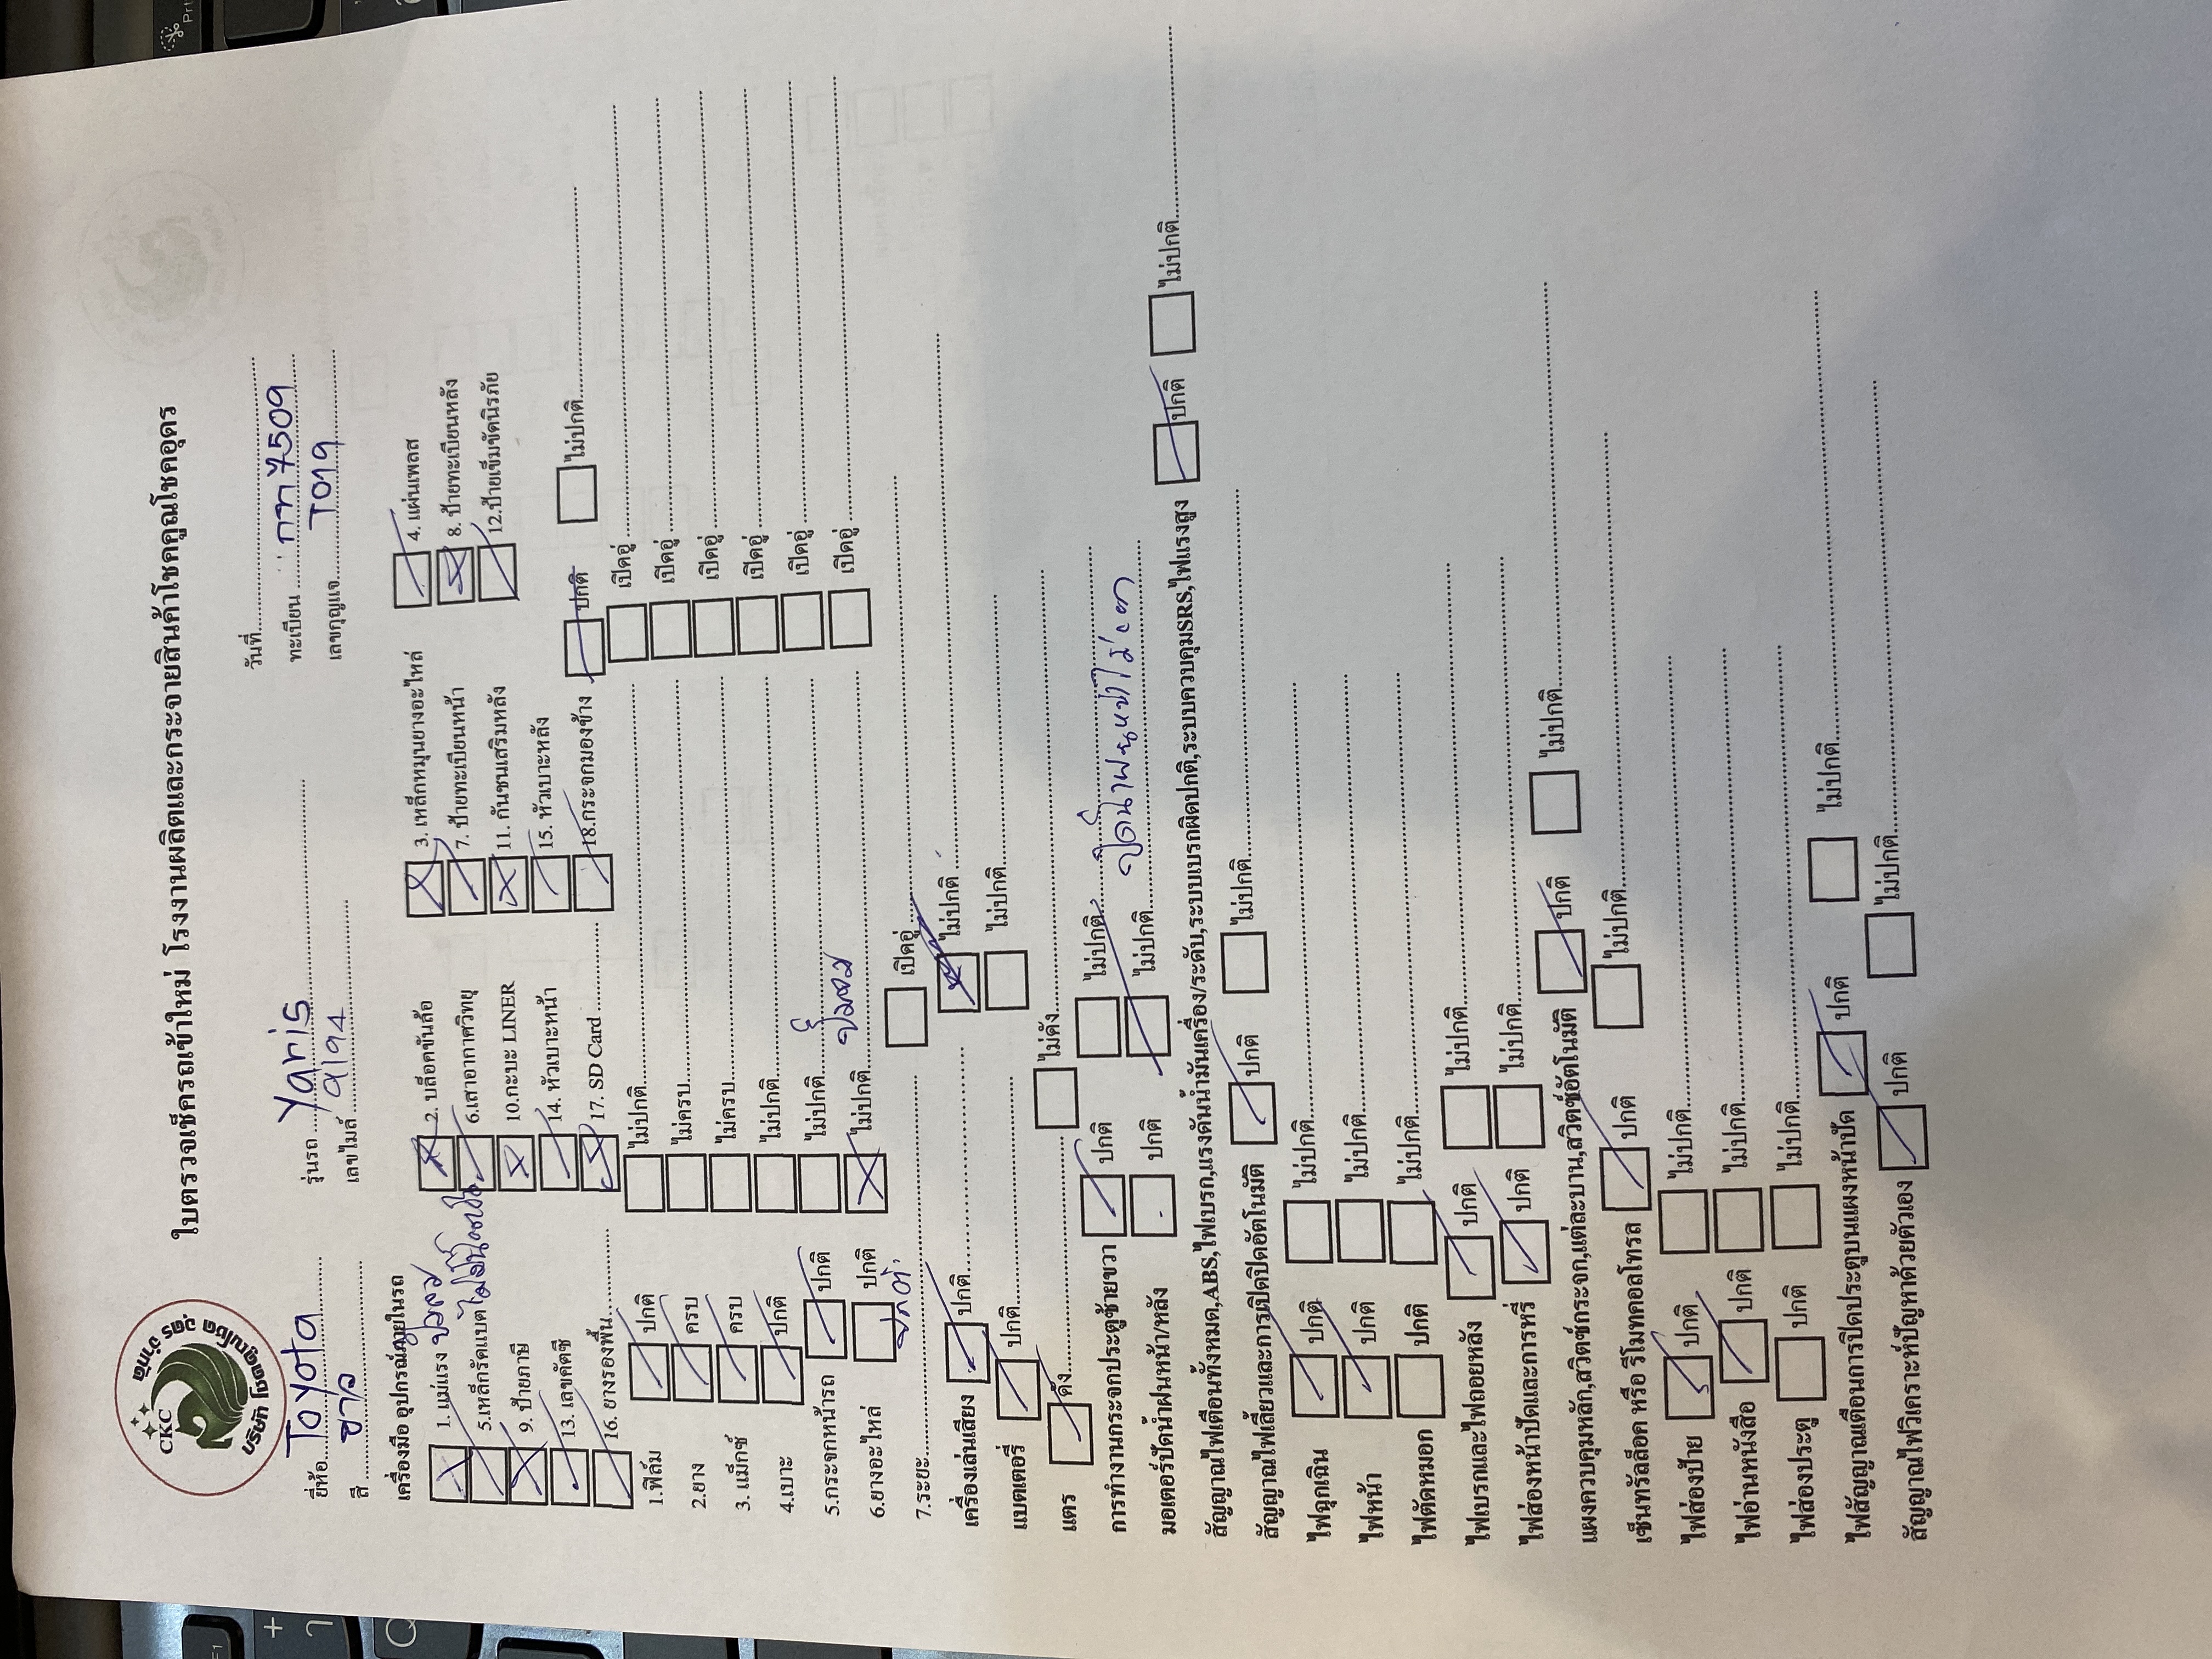 CKC
บริษัท โชคคูณโชค อุดร จำกัด
ใบตรวจเช็ครถเข้าใหม่ โรงงานผลิตและกระจายสินค้าโชคคูณโชคอุดร
วันที่
ยี่ห้อ Toyota รุ่นรถ Yaris ทะเบียน กท 7509
สี ขาว เลขไมล์ เลขกุญแจ
เครื่องมือ อุปกรณ์ภายในรถ
1. แม่แรง 2. บล็อคขันล้อ 3. เหล็กหมุนยางอะไหล่ 4. แผ่นเพลส
5.เหล็กรัดแบต 6.เสาอากาศวิทยุ 7. ป้ายทะเบียนหน้า 8. ป้ายทะเบียนหลัง
9. ป้ายภาษี 10.กะบะ LINER 11. กันชนเสริมหลัง 12.ป้ายเข็มขัดนิรภัย
13. เลขคัคซี 14. หัวเบาะหน้า 15. หัวเบาะหลัง
16. ยางรองพื้น 17. SD Card 18.กระจกมองข้าง ปกติ ไม่ปกติ
1.ฟิล์ม ปกติ ไม่ปกติ เปิดอู่
2.ยาง ครบ ไม่ครบ เปิดอู่
3. แม็กซ์ ครบ ไม่ครบ เปิดอู่
4.เบาะ ปกติ ไม่ปกติ เปิดอู่
5.กระจกหน้ารถ ปกติ ไม่ปกติ เปิดอู่
6.ยางอะไหล่ ปกติ ไม่ปกติ เปิดอู่
7.ระยะ เปิดอู่
เครื่องเล่นเสียง ปกติ ไม่ปกติ
แบตเตอรี่ ปกติ ไม่ปกติ
แตร ดัง ไม่ดัง
การทำงานกระจกประตูซ้ายขวา ปกติ ไม่ปกติ
มอเตอร์ปัดน้ำฝนหน้า/หลัง ปกติ ไม่ปกติ
สัญญาณไฟเตือนทั้งหมด,ABS,ไฟเบรก,แรงดันน้ำมันเครื่อง/ระดับ,ระบบเบรกผิดปกติ,ระบบควบคุมSRS,ไฟแรงสูง ปกติ ไม่ปกติ
สัญญาณไฟเลี้ยวและการเปิดปิดอัตโนมัติ ปกติ ไม่ปกติ
ไฟฉุกเฉิน ปกติ ไม่ปกติ
ไฟหน้า ปกติ ไม่ปกติ
ไฟตัดหมอก ปกติ ไม่ปกติ
ไฟเบรกและไฟถอยหลัง ปกติ ไม่ปกติ
ไฟส่องหน้าปัดและการหรี่ ปกติ ไม่ปกติ
แผงควบคุมหลัก,สวิตซ์กระจก,แต่ละบาน,สวิตซ์อัตโนมัติ ปกติ ไม่ปกติ
เซ็นทรัลล็อค หรือ รีโมทคอลโทรล ปกติ ไม่ปกติ
ไฟส่องป้าย ปกติ ไม่ปกติ
ไฟอ่านหนังสือ ปกติ ไม่ปกติ
ไฟส่องประตู ปกติ ไม่ปกติ
ไฟสัญญาณเตือนการปิดประตูบนแผงหน้าปัด ปกติ ไม่ปกติ
สัญญาณไฟวิเคราะห์ปัญหาด้วยตัวเอง ปกติ ไม่ปกติ